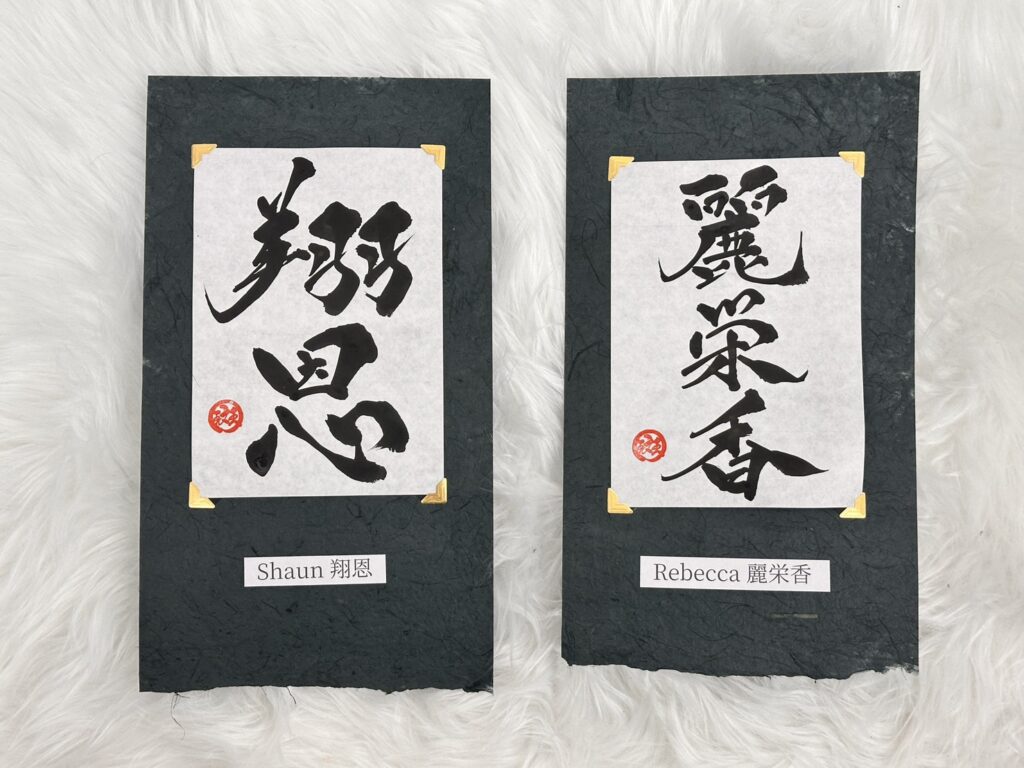 翔
恩
Shaun 翔恩
麗
栄
香
Rebecca 麗栄香